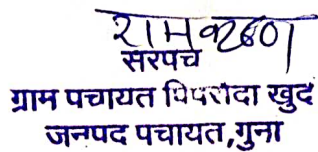 रामकृष्ण
सरपंच
ग्राम पचायत पिपरोदा खुद
जनपद पचायत,गुना